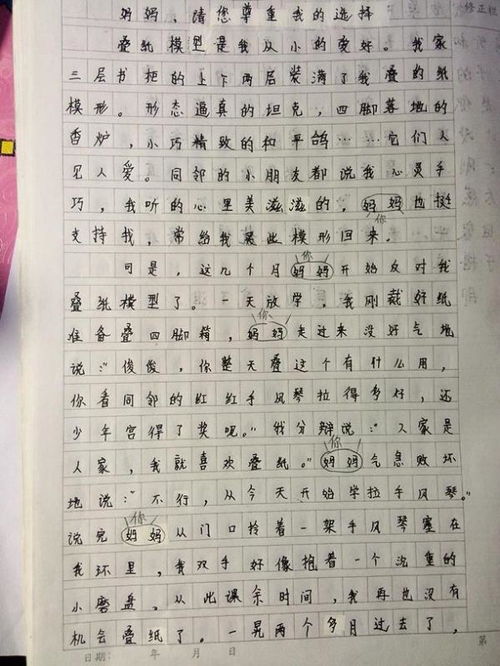 修正栏
妈妈，请您尊重我的选择
叠纸模型是我从小的爱好。我家
三层书柜的上下两层装满了我叠的纸
模形。形态逼真的坦克，四脚著地的
香炉，小巧精致的和平鸽……它们人
见人爱。同邻的小朋友都说我心灵手
巧，我听的心里美滋滋的，妈妈也挺
你
支持我，常给我买些模形回来。
你
可是，这几个月妈妈开始反对我
叠纸模型了。一天放学，我刚裁好纸
你
准备叠四脚箱，妈妈走过来没好气地
说：“俊俊，你整天叠这个有什么用，
你看同邻的红红手风琴拉得多好，还
少年宫得了奖呢。”我分辩说：“人家是
你
人家，我就喜欢叠纸。”妈妈气急败坏
地说：“不行，从今天开始学拉手风琴。”
你
说完妈妈从门口拎着一架手风琴塞在
我环里，我双手好像抱着一个沈重的
小磨盘。从此课余时间，我再也没有
机会叠纸了。一晃两个多月过去了，
日期： 年 月 日
第